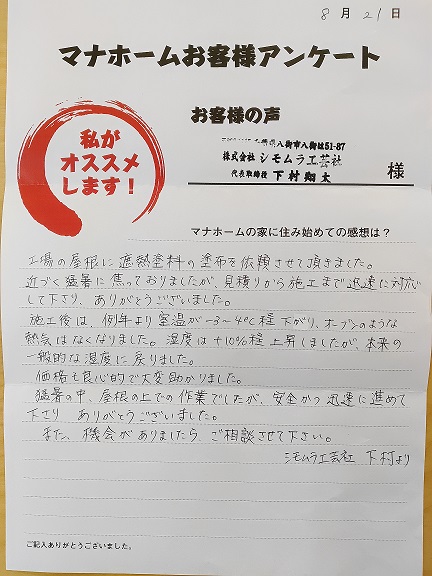 8月21日
マナホームお客様アンケート
私が
オススメ
します！
お客様の声
八街市八街は51-87
株式会社 シモムラ工芸社
代表取締役 下村翔太
様
マナホームの家に住み始めての感想は？
工場の屋根に遮熱塗料の塗布を依頼させて頂きました。
近づく猛暑に焦っておりましたが、見積りから施工まで迅速に対応
して下さり、ありがとうございました。
施工後は、例年より室温が-3~4℃程下がり、オーブンのような
熱気はなくなりました。湿度は+10%程上昇しましたが、本来の
一般的な湿度に戻りました。
価格も良心的で大変助かりました。
猛暑の中、屋根の上での作業でしたが、安全かつ迅速に進めて
下さり ありがとうございました。
また、機会がありましたら、ご相談させて下さい。
シモムラ工芸社 下村より
ご記入ありがとうございました。